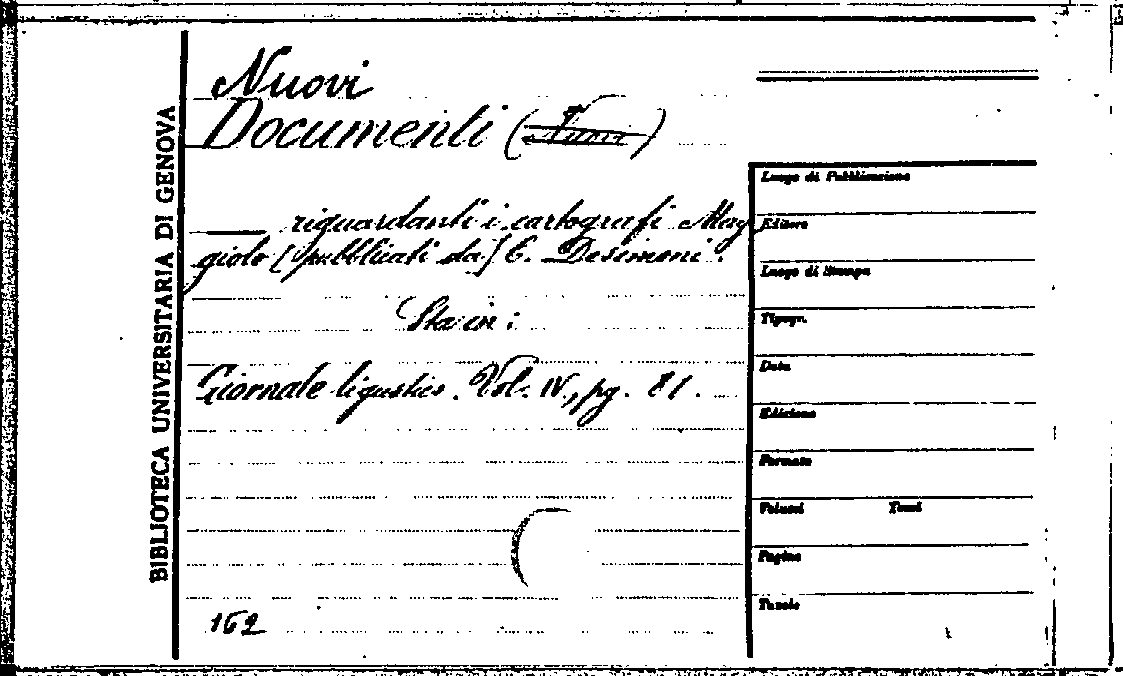 BIBLIOTECA UNIVERSITARIA DI GENOVA
Nuovi
Documenti (Nuovi)
riguardanti i cartografi Mag
giolo [pubblicati da] C. Desimoni.
Sta in:
Giornale ligustico. Vol. IV, pg. 81.
162
Luogo di Pubblicazione
Editore
Luogo di Stampa
Tipogr.
Data
Edizione
Formato
Volumi Tomi
Pagine
Tavole